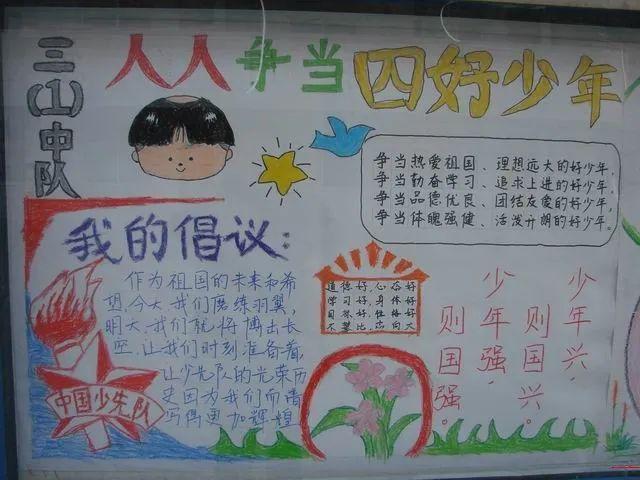 三(1)中队
人人争当四好少年
争当热爱祖国、理想远大的好少年,
争当勤奋学习、追求上进的好少年,
争当品德优良、团结友爱的好少年,
争当体魄强健、活泼开朗的好少年。
我的倡议:
作为祖国的未来和希
望,今天,我们磨练羽翼,
明天,我们就将搏出长
空,让我们时刻准备着,
让少先队的光荣历
史因为我们而谱
写得更加辉煌
中国少先队
道德好,心态好
学习好,身体好
少年兴,
则国兴。
少年强,
则国强。